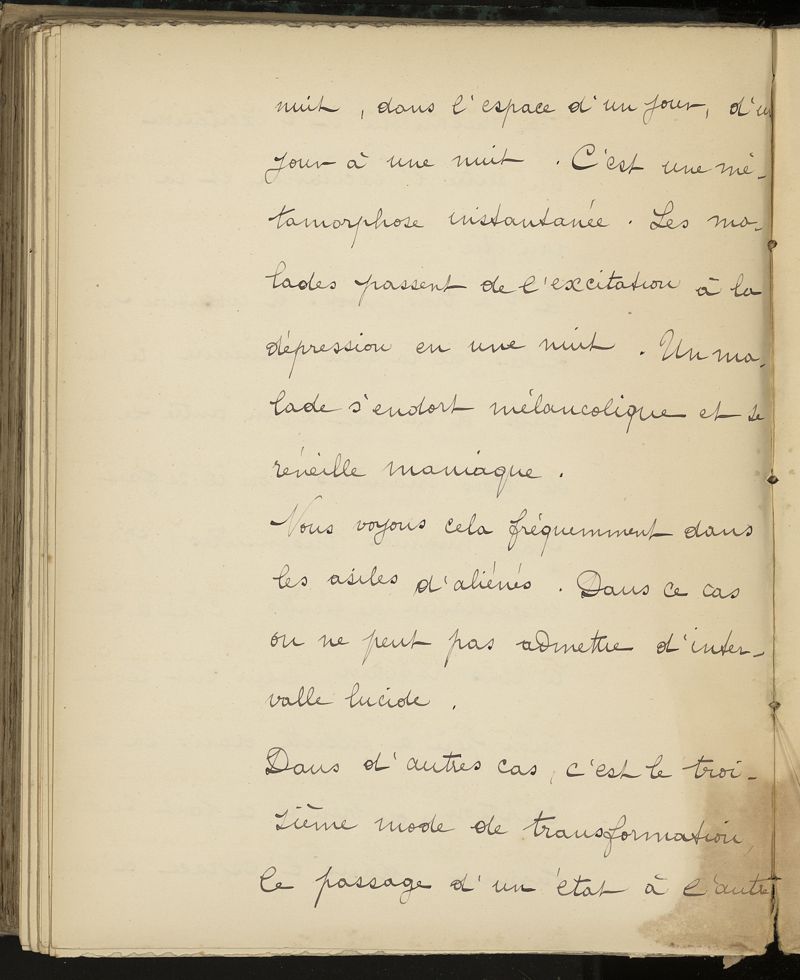 nuit, dans l'espace d'un jour, d'un
jour à une nuit. C'est une mé-
tamorphose instantanée. Les ma-
lades passent de l'excitation à la
dépression en une nuit. Un ma-
lade s'endort mélancolique et se
réveille maniaque.
Nous voyons cela fréquemment dans
les asiles d'aliénés. Dans ce cas
on ne peut pas admettre d'inter-
valle lucide.
Dans d'autres cas, c'est le troi-
sième mode de transformation,
le passage d'un état à l'autre